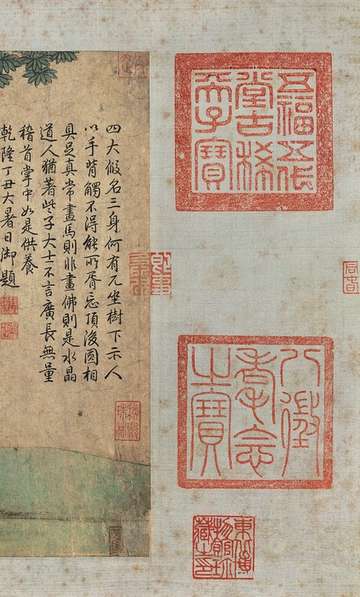 五福五代
堂古稀
天子寶
八徵
耄念
之寶
東北博
物館珍
藏之印
四大假名三身何有兀坐樹下示人
以手背觸不得能所胥忘頂後圓相
具足真常畫馬則非畫佛則是水晶
道人猶著些子大士不言廣長無量
稽首掌中如是供養
乾隆丁丑大暑日御題